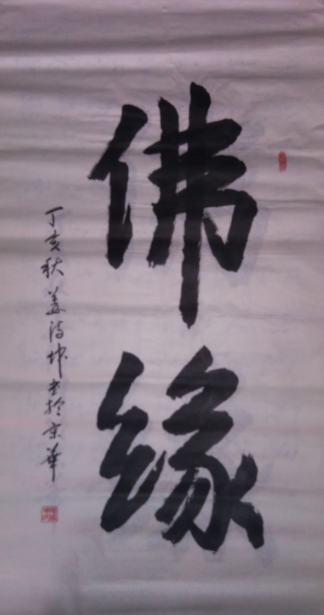 佛缘
丁亥秋姜波坤书于京华